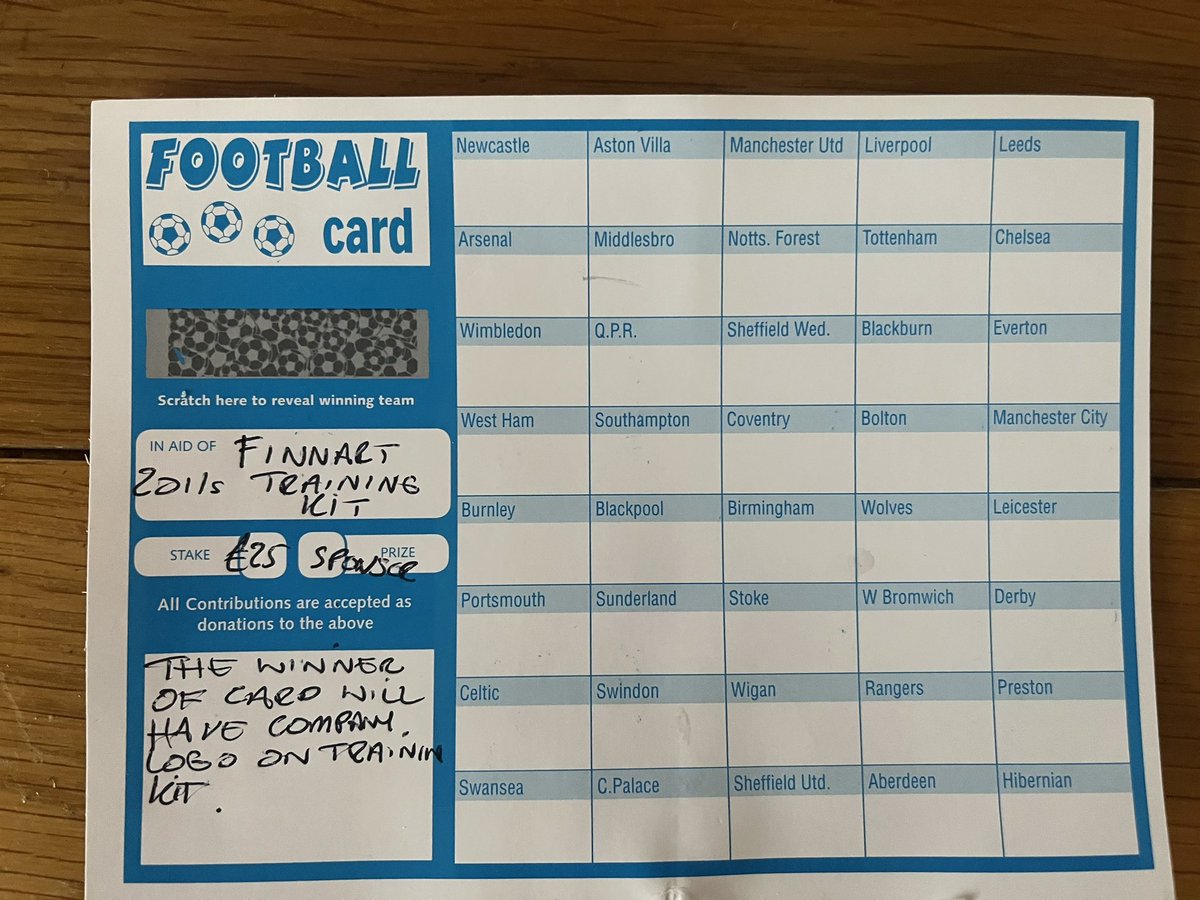 FOOTBALL
card
Scratch here to reveal winning team
IN AID OF FINNART
2011s TRAINING
KIT
STAKE £25 SPONSOR PRIZE
All Contributions are accepted as
donations to the above
THE WINNER
OF CARD WILL
HAVE COMPANY.
LOGO ON TRAININ
KIT.
Newcastle Aston Villa Manchester Utd Liverpool Leeds
Arsenal Middlesbro Notts. Forest Tottenham Chelsea
Wimbledon Q.P.R. Sheffield Wed. Blackburn Everton
West Ham Southampton Coventry Bolton Manchester City
Burnley Blackpool Birmingham Wolves Leicester
Portsmouth Sunderland Stoke W Bromwich Derby
Celtic Swindon Wigan Rangers Preston
Swansea C.Palace Sheffield Utd. Aberdeen Hibernian